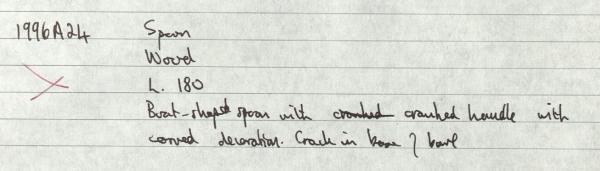 1996A24 Spoon
Wood
L. 180
Boat-shaped spoon with cranked cranked handle with
carved decoration. Crack in base of bowl